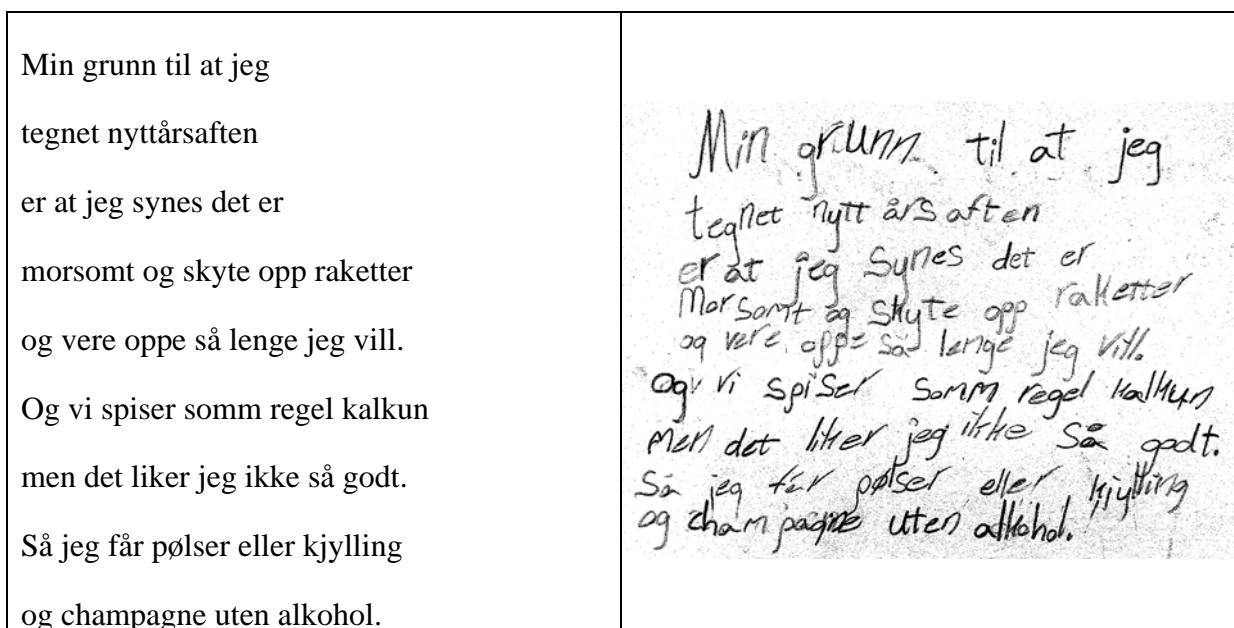 Min grunn til at jeg
tegnet nyttårsaften
er at jeg synes det er
morsomt og skyte opp raketter
og vere oppe så lenge jeg vill.
Og vi spiser somm regel kalkun
men det liker jeg ikke så godt.
Så jeg får pølser eller kjylling
og champagne uten alkohol.
Min grunn til at jeg
tegnet nytt års aften
er at jeg synes det er
Morsomt og skyte opp raketter
og vere oppe så lenge jeg vill.
Og vi spiser somm regel kalkun
men det liker jeg ikke så godt.
Så jeg får pølser eller kjylling
og champagne uten alkohol.